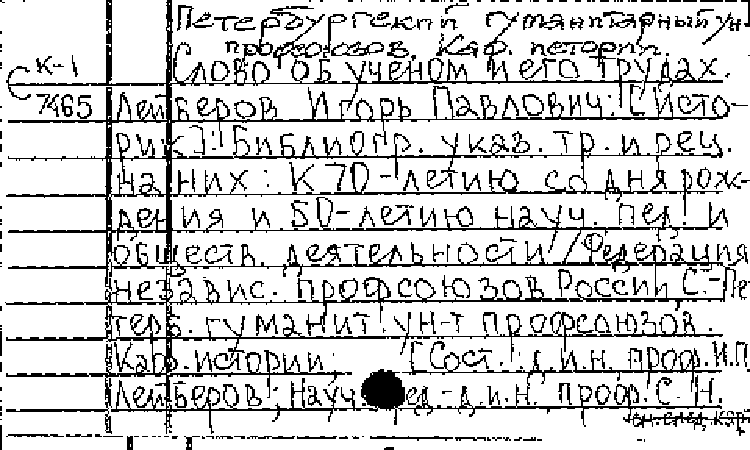 Петербургский гуманитарный ун-
профсоюзов. Каф. истории.
К-1 Слово об ученом и его трудах.
7465 Лейберов Игорь Павлович: [Исто-
рик]: Библиогр. указ. тр. и рец.
на них: К 70-летию со дня рож-
дения и 50-летию науч. пед. и
обществ. деятельности / Федерация
независ. профсоюзов России С.-Пе
терб. гуманит. ун-т профсоюзов.
Каф. истории; [Сост.: д.и.н. проф. И.П.
Лейберов; Науч. ред.-д.и.н. проф. С.Н.
см. след. карт